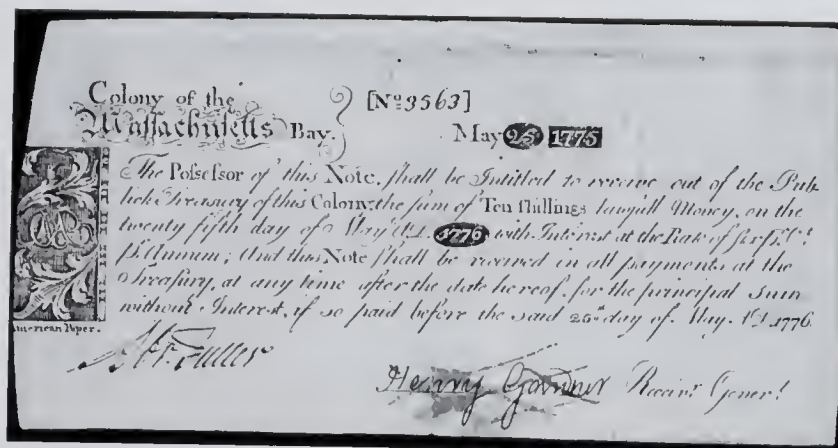 Colony of the
Massachusetts Bay. [No. 3563]
May 25 1775
The Possessor of this Note, shall be Intitled to receive out of the Pub-
lick Treasury of this Colony, the sum of Ten shillings lawfull Money, on the
twenty fifth day of May A.D. 1776 with Interest at the Rate of six Pr. Ct.
Pr. Annum; And this Note shall be received in all payments at the
Treasury, at any time after the date hereof, for the principal Sum
without Interest, if so paid before the said 25th day of May, A.D. 1776.
American Paper.
Fuller
Henry Gardner Receivr. Generl.